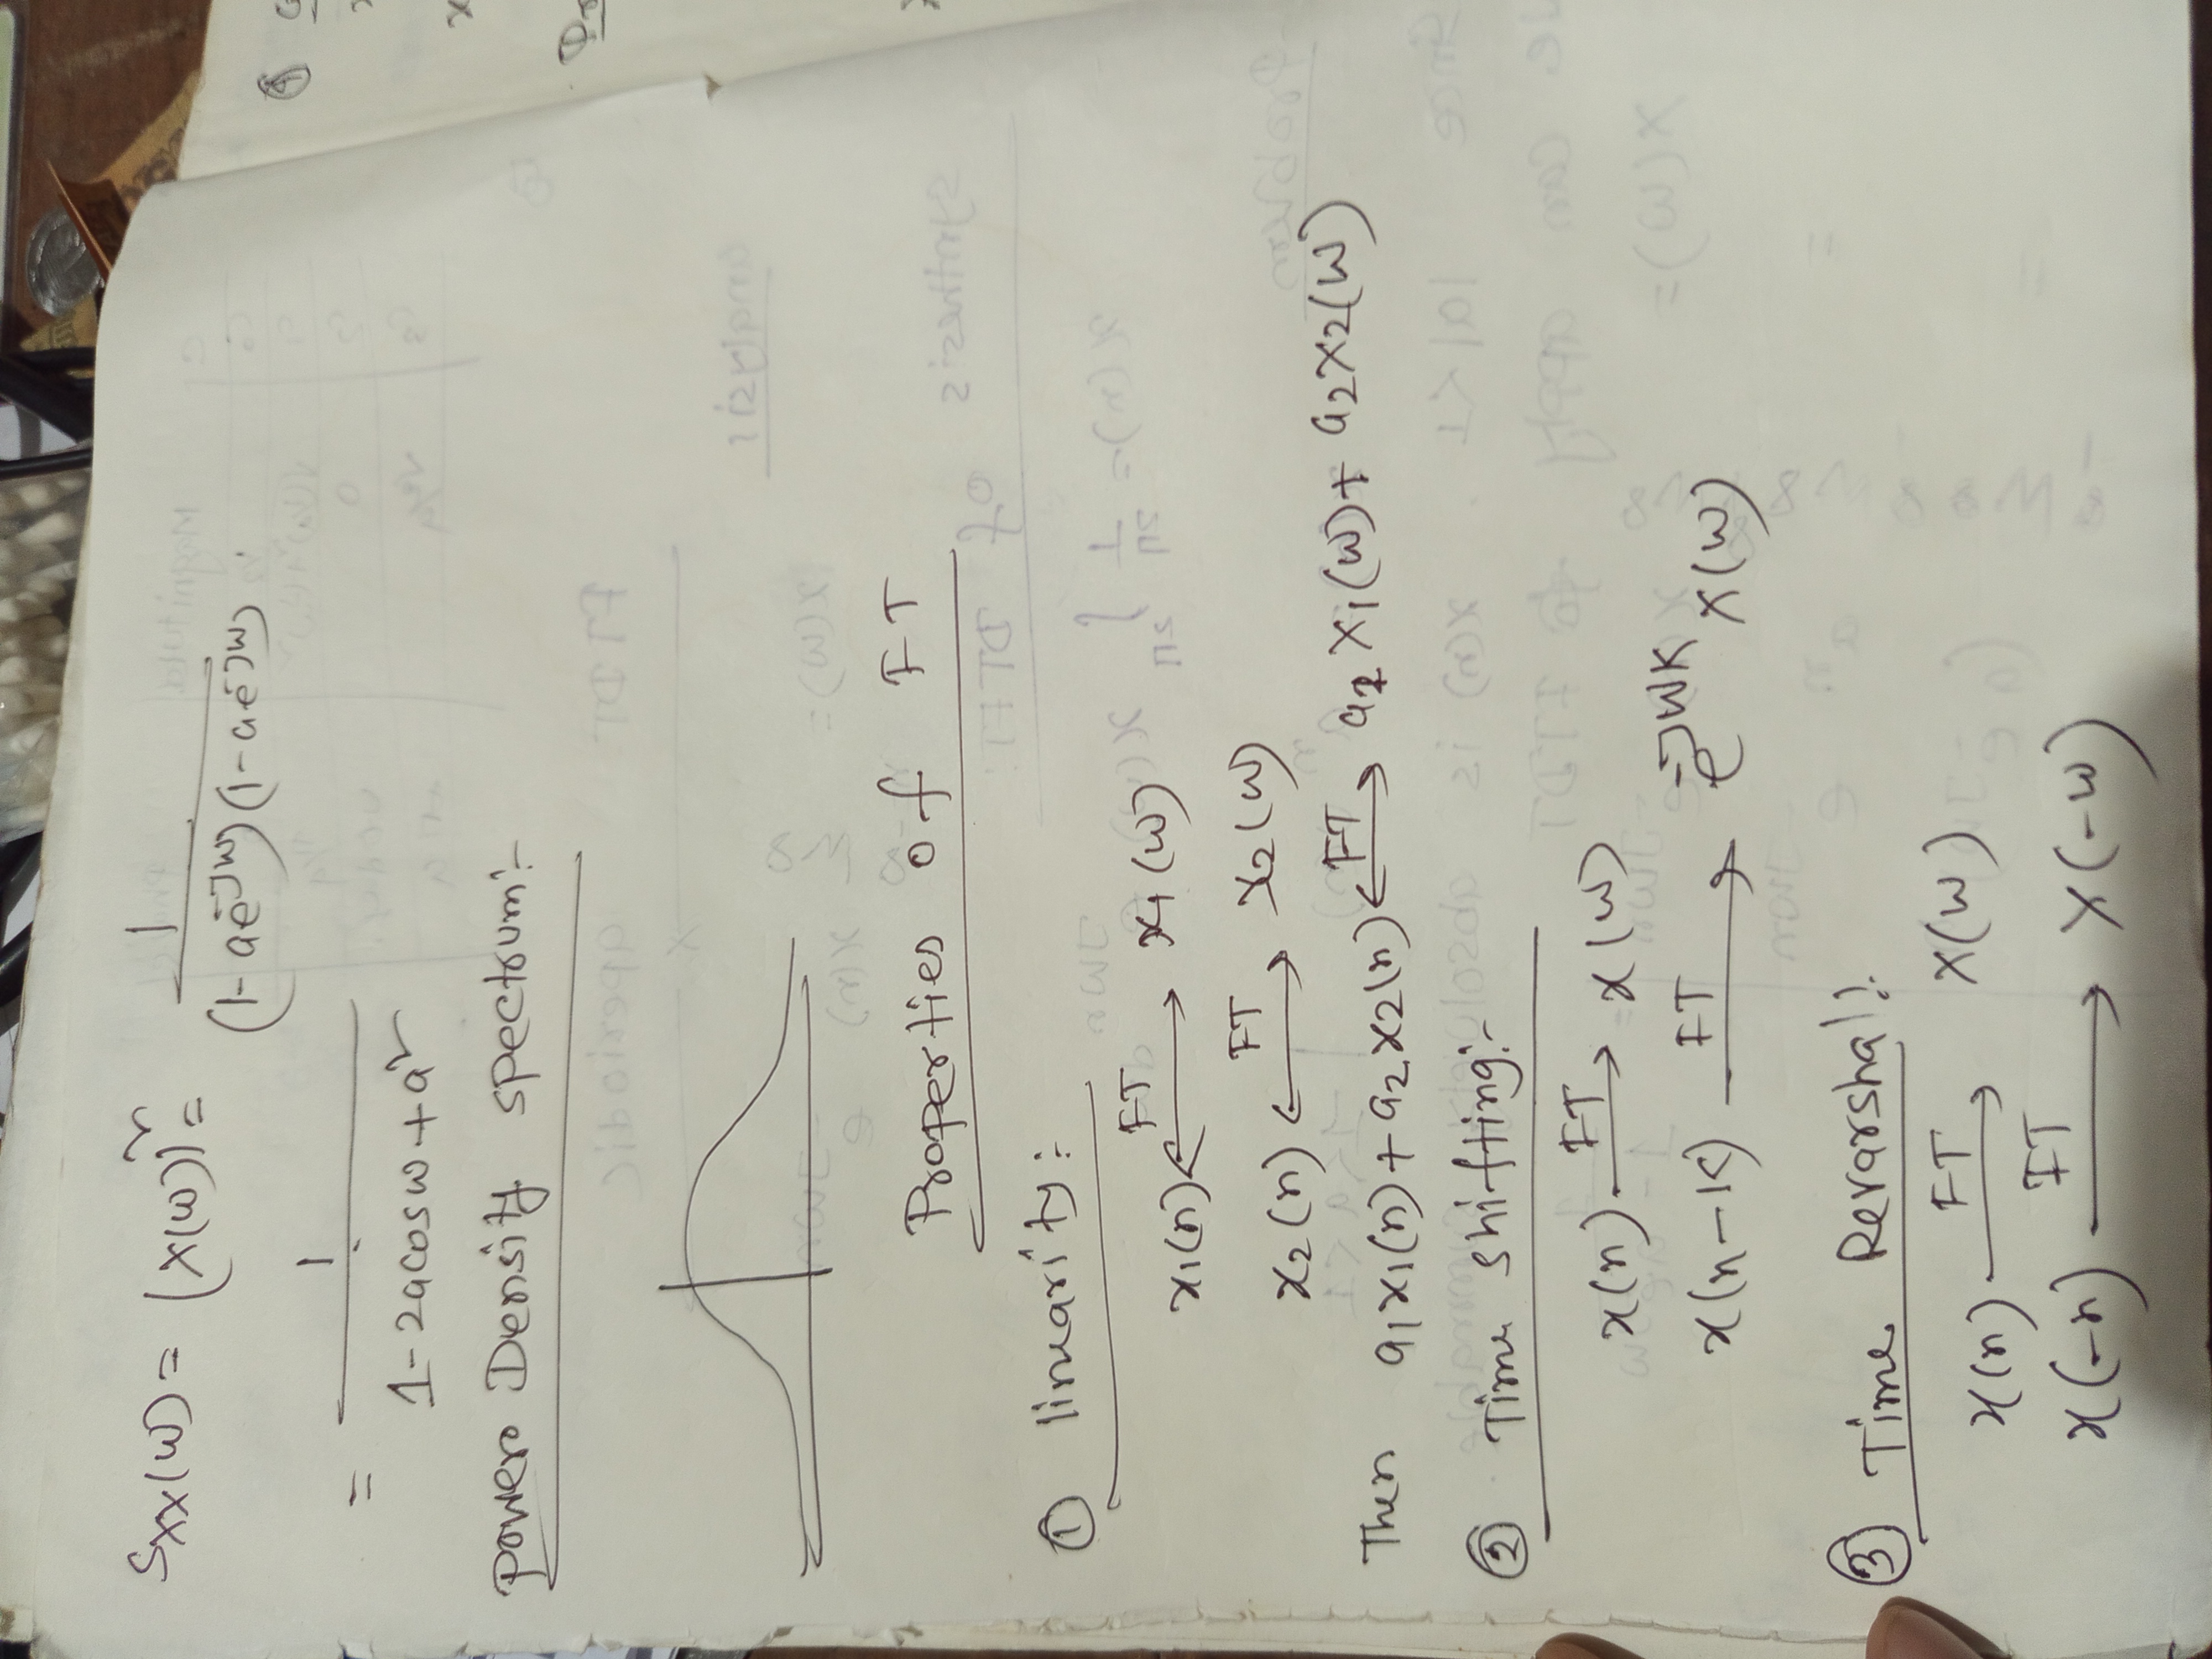 Sxx(w) = (X(w))² = 1 / (1-ae^-jw)(1-ae^-jw)
= 1 / 1-2acosw+a²
Power Density spectrum:-
Properties of FT
① linearity:-
x1(n) <-FT-> x1(w)
x2(n) <-FT-> x2(w)
Then a1x1(n)+a2x2(n) <-FT-> a2 x1(w)+ a2x2(w)
② Time shifting:-
x(n) -FT-> x(w)
x(n-k) -FT-> e^-jwk x(w)
③ Time Revarshal:
x(n) -FT-> X(w)
x(-n) -FT-> X(-w)